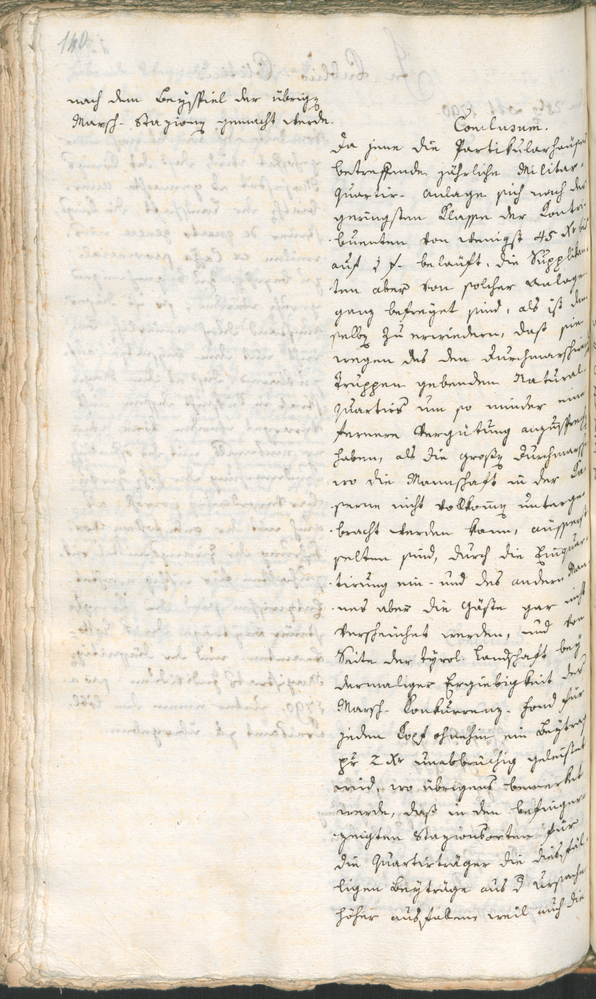 140.
nach dem Beyspiel der übrigen
Marsch-Stazionen gemacht werde.
Conclusum.
Da jene die Partikularhäuser
betreffende jährliche Militar-
Quartir-Anlage sich nach der
geringsten Classe der Contri-
buenten von wenigst 45 Xr bis
auf 1 f. beläuft, die Supplikan-
ten aber von solcher Anlage
ganz befreyet sind, als ist den
selben zu erwiedern, daß sie
wegen des den durchmarschirenden
Truppen gebenden Natural-
Quartirs um so minder eine
fernere Vergütung anzusprechen
haben, als die großen Durchmärsche
wo die Mannschaft in der Ca-
serne nicht vollkommen unterge-
bracht werden kann, äusserst
selten sind, durch die Einquar-
tirung ein- und des andern Man-
nes aber die Gäste gar nicht
verscheuchet werden, und von
Seite der tyrol. Landschaft bey
dermaliger Ergiebigkeit des
Marsch-Konkurrenz-Fond für
jeden Kopf ohnehin ein Beytrag
pr 2 Xr unabbrüchig geleistet
wird, wo übrigens bemerket
werde, daß in den
Stazionsorten für
die Quartirträger die dießfäl-
ligen Beyträge aus d Ursache
höher ausfallen, weil auch die